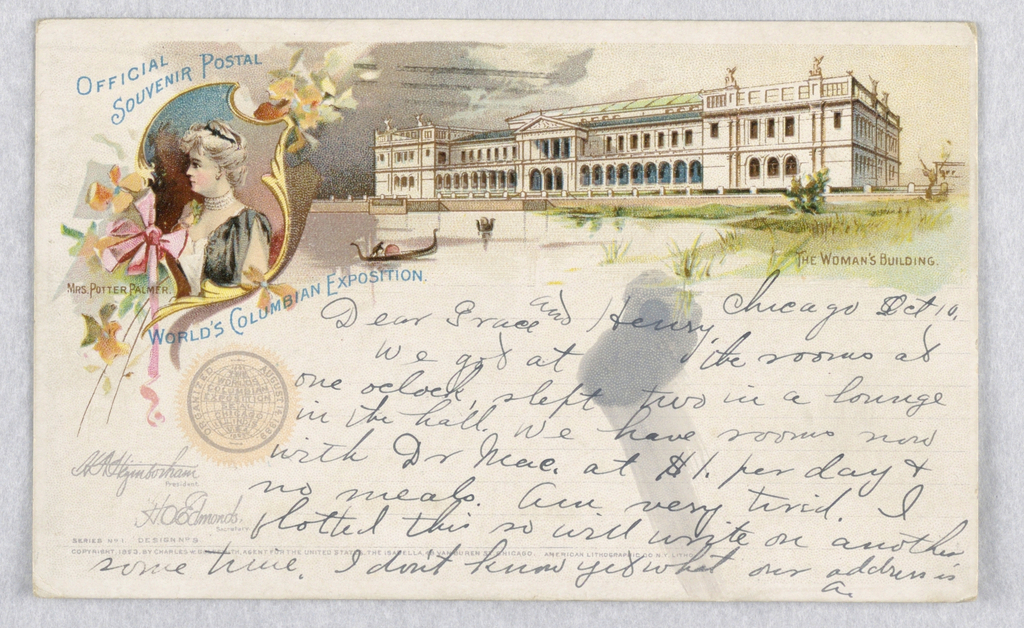 OFFICIAL
SOUVENIR POSTAL
MRS. POTTER PALMER.
WORLD'S COLUMBIAN EXPOSITION.
THE WOMAN'S BUILDING.
Chicago Oct 10,
Dear Grace and Henry,
We got at the rooms at
one oclock, slept two in a lounge
in the hall. We have rooms now
with Dr Mac. at $1. per day &
no meals. Am very tired. I
blotted this so will write on another
some time. I dont know yet what our address is
a.
ORGANIZED AUGUST 1889
THE WORLD'S COLUMBIAN EXPOSITION CHICAGO
H N Higinbotham
President.
H.O. Edmonds.
Secretary.
SERIES No 1 DESIGN No 5
COPYRIGHT 1893, BY CHARLES W. AGENT FOR THE UNITED STATES, THE ISABELLA, VAN BUREN ST. CHICAGO. AMERICAN LITHOGRAPHIC CO N.Y. LITHO